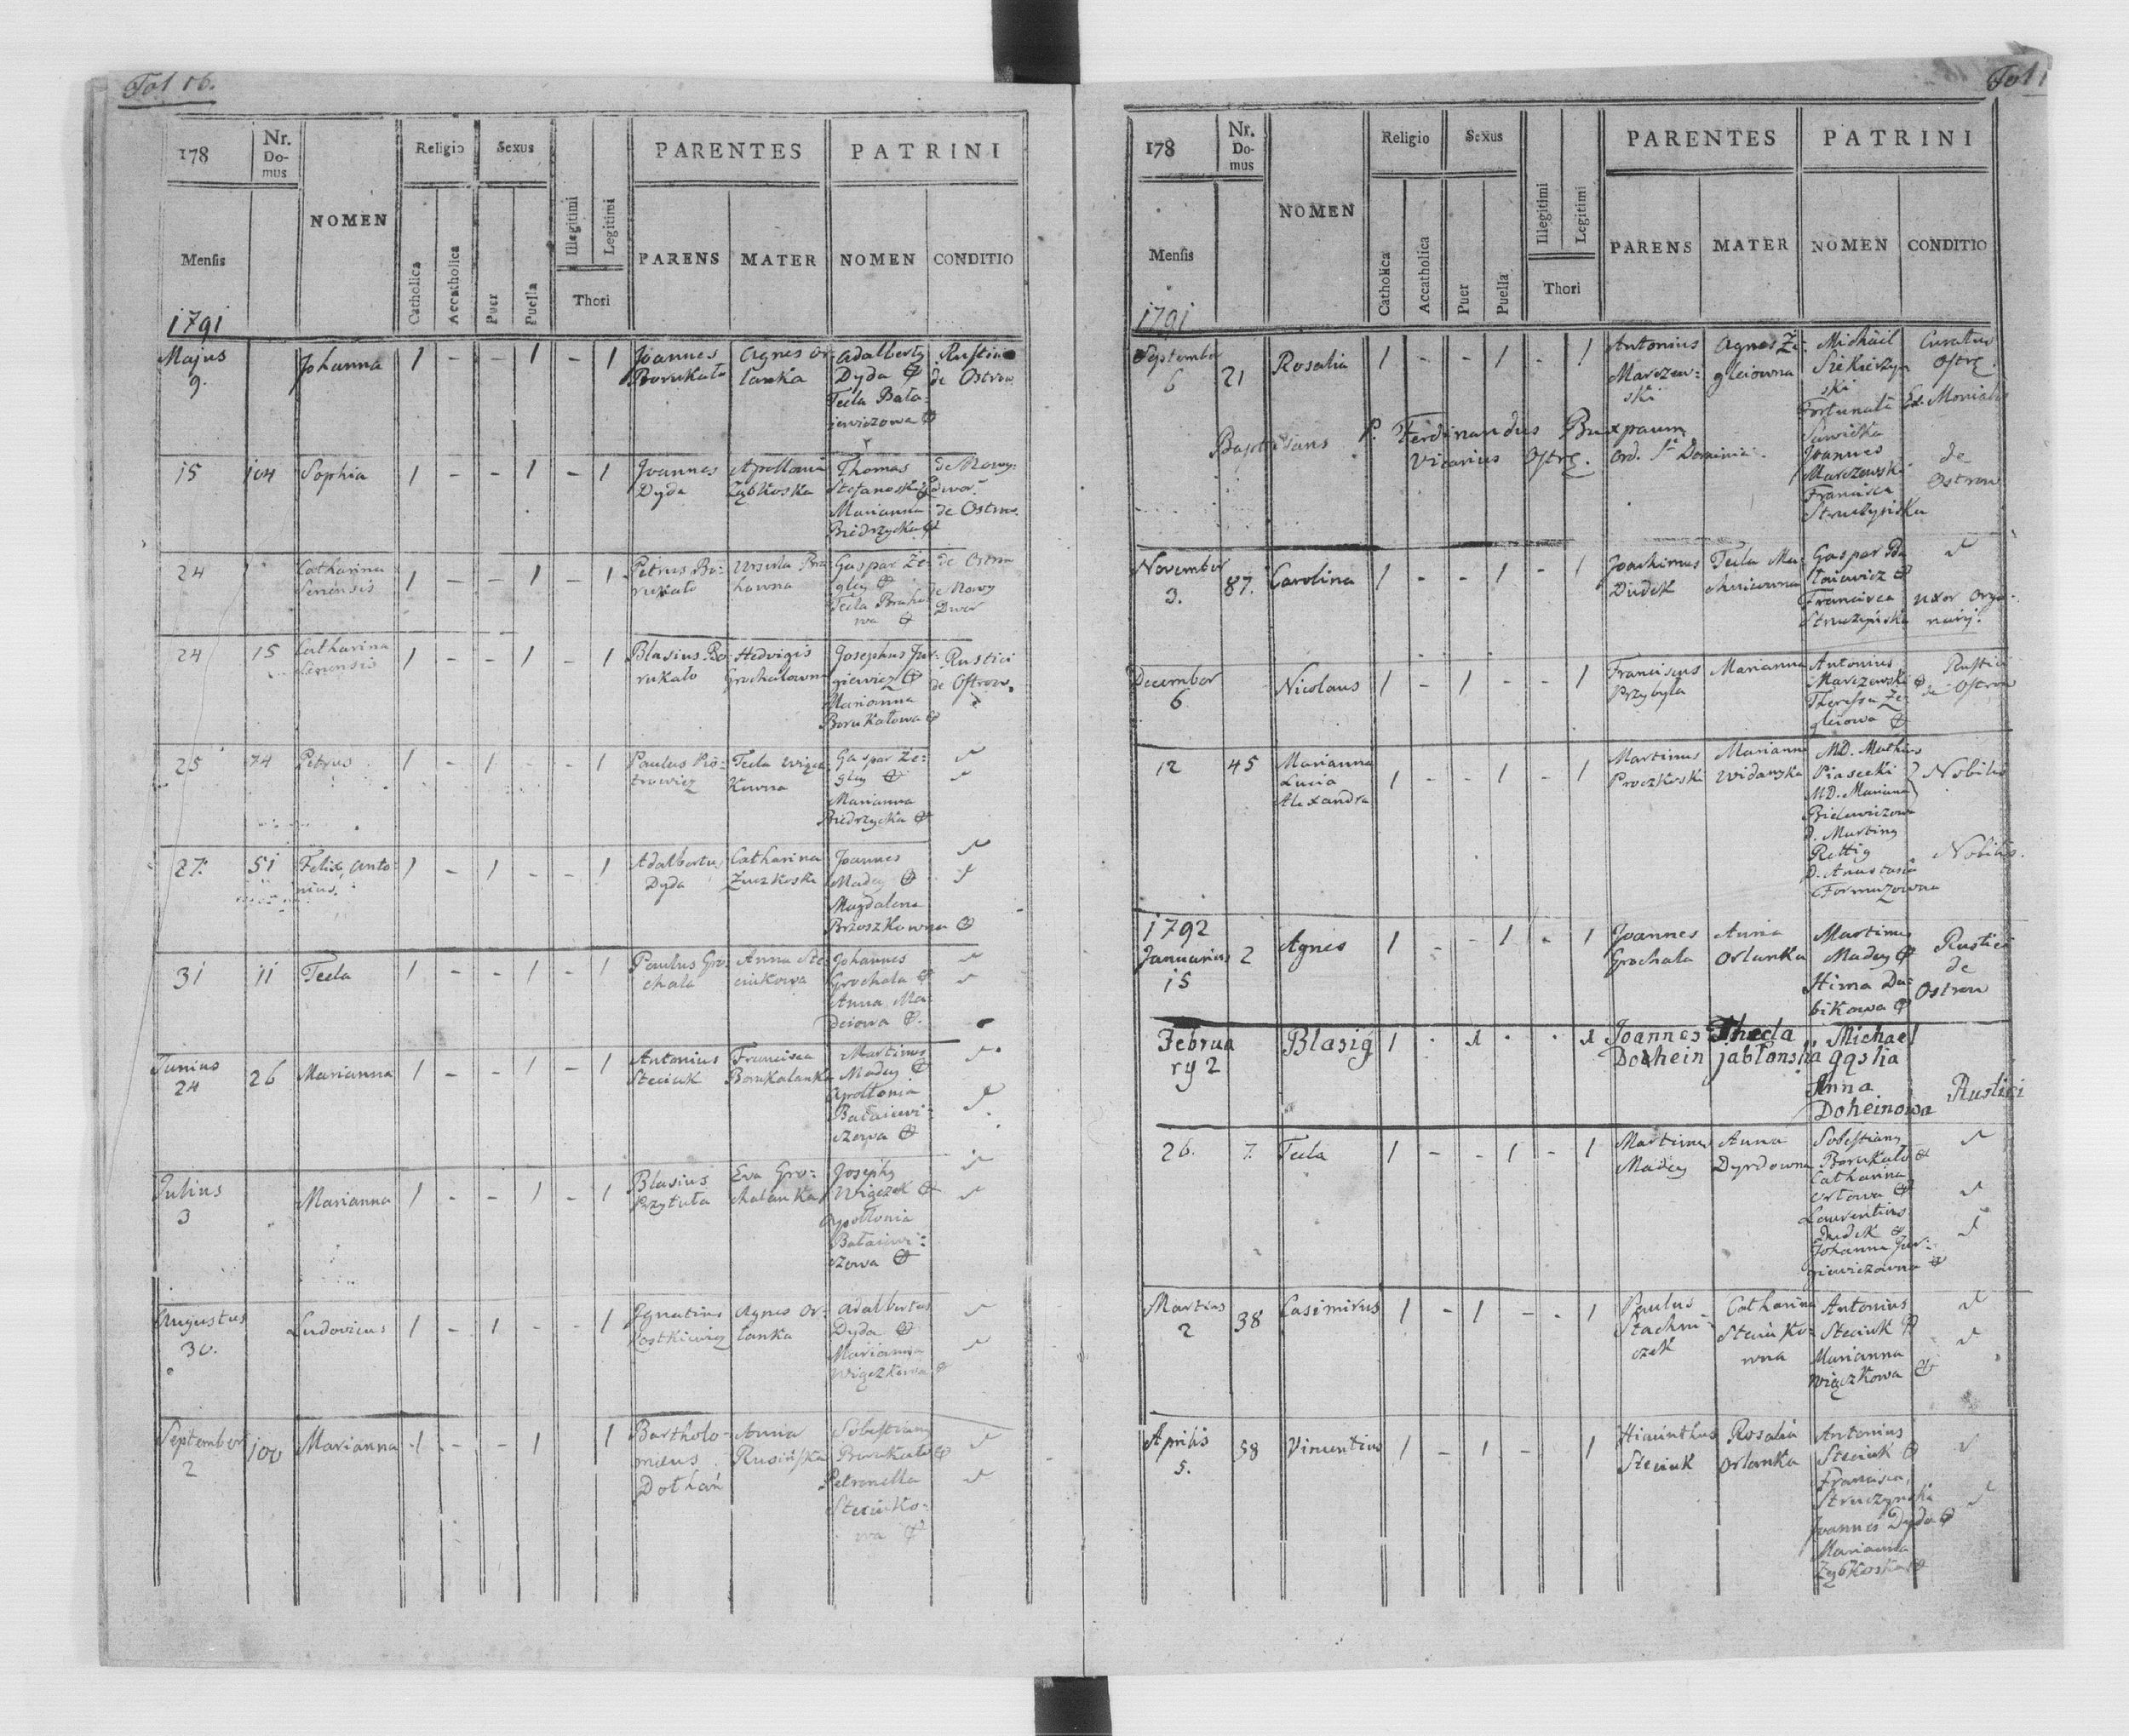 Fol 16.
178
Nr. Domus
NOMEN
Religio
Sexus
Illegitimi
Legitimi
PARENTES
PATRINI
Mensis
Catholica
Accatholica
Puer
Puella
Thori
PARENS
MATER
NOMEN
CONDITIO
1791
Majus 9.
Johanna
1 - - 1 - 1
Joannes Borukało
Agnes Orlanka
Adalbertg Dyda
Tecla Bałajewiczowa
Rustici de Ostrow
15
104
Sophia
1 - - 1 - 1
Joannes Dyda
Apollonia
Thomas Stefanoski
Marianna Biedrzycka
de Nowy dwor
de Ostrow
24
Catharina Senensis
1 - - 1 - 1
Petrus Borukało
Ursula
Gaspar Żegley
Tecla
de Ostrow
de Nowy Dwor
24
15
Catharina Senensis
1 - - 1 - 1
Blasius Borukało
Hedvigis Grochalowna
Josephus Jurgiewicz
Marianna Borukałowa
Rustici de Ostrow.
25
74
Petrus
1 - 1 - - 1
Paulus Piotrowicz
Tecla
Gaspar Żegley
Marianna Biedrzycka
27.
51
Felix, Antonius.
1 - 1 - - 1
Adalbertus Dyda
Catharina
Joannes Madey
Magdalena Brzoszkowna
31
11
Tecla
1 - - 1 - 1
Paulus Grochala
Anna Steciukowa
Johannes Grochala
Anna Madeiowa
Junius 24
26
Marianna
1 - - 1 - 1
Antonius Steciuk
Francisca Borukalanka
Martinus Madey
Apollonia Bałaiewiczowa
Julius 3
Marianna
1 - - 1 - 1
Blasius Przytuła
Eva Grochalanka
Josephg Wiączek
Apollonia Bałaiewiczowa
Augustus 30.
Ludovicus
1 - 1 - - 1
Ignatius Kostkiewicz
Agnes Orlanka
Adalbertus Dyda
Marianna Wiączkowa
September 2
100
Marianna
1 - - 1 1
Bartholomeus Dothań
Anna Rusińska
Sobestiang Borukało
Petronella Steciukowa
178
Nr. Domus
NOMEN
Religio
Sexus
Illegitimi
Legitimi
PARENTES
PATRINI
Mensis
Catholica
Accatholica
Puer
Puella
Thori
PARENS
MATER
NOMEN
CONDITIO
1791
September 6
21
Rosalia
1 - - 1 - 1
Antonius Marczewski
Agnes Żegleiowna
Michäil Siekierzynski
Fortunata Sawicka
Joannes Marczewski
Francisca Struczyńska
Curatus Ostr.
Ex. Monialis
de Ostrow
Baptisans P. Ferdinandus Buxpaum
Vicarius Ostr. Ord. St Dominici.
November 3.
87.
Carolina
1 - - 1 - 1
Joachimus Dudek
Tecla
Gaspar
Francisca Struczyńska
uxor Organarij.
December 6
Nicolaus
1 - 1 - - 1
Franciscus Przybyła
Marianna
Antonius Marczewski
Theressa Żegleiowa
Rustici de Ostrow
12
45
Marianna Lucia Alexandra
1 - - 1 - 1
Martinus Proczkoski
Marianna Widawska
MD. Mathias Piasecki
MD. Mariana Bielawiczowa
D. Marting Rettig
D. Anastasia Formuzowna
Nobilis
Nobilis.
1792
Januarius 15
2
Agnes
1 - - 1 - 1
Joannes Grochala
Anna Orlanka
Martinus Madey
Hima Dubikowa
Rustici de Ostrow
Februa ry 2
Blasig
1 . 1 . . 1
Joannes Dochein
Thecla jabłonska
Michael gąska
Anna Doheinowa
Rustici
26.
7.
Tecla
1 - - 1 - 1
Martinus Madey
Anna Dyrdowna
Sobestiang Borukało
Catharina Orłowa
Laurentius Dudek
Johanna Jurgiewiczowna
Martius 2
38
Casimirus
1 - 1 - - 1
Paulus Stachniczek
Catharina Steciukowna
Antonius Steciuk
Marianna Wiączkowa
Aprilis 5.
58
Vincentius
1 - 1 - 1
Hiacinthus Steciuk
Rosalia Orlanka
Antonius Steciuk
Francisca Struczynska
Joannes Dyda
Marianna